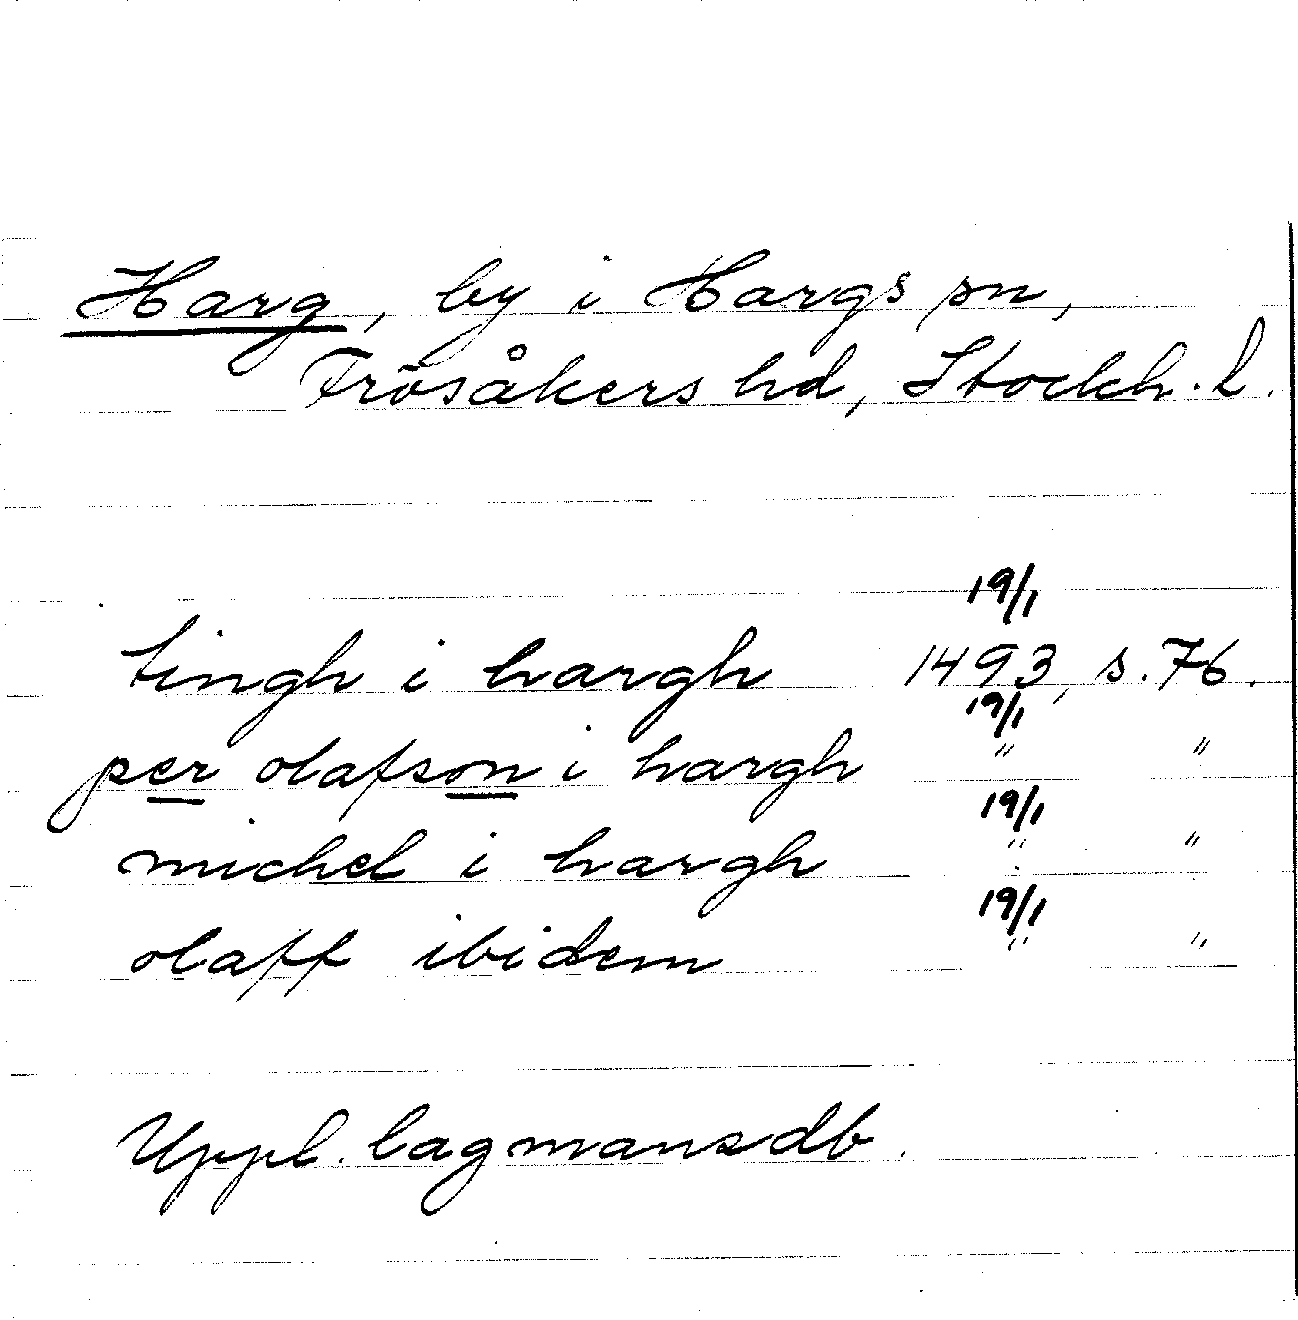 Harg, by i Hargs sn,
Frösåkers hd, Stockh. l.
19/1
tingh i hargh 1493, s. 76.
19/1
per olafson i hargh " "
19/1
michel i hargh " "
19/1
olaff ibidem " "
Uppl. lagmansdb.